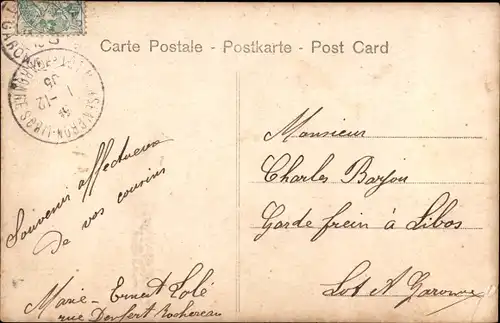 Carte Postale - Postkarte - Post Card
Souvenir affectueux
de vos cousins
Marie - Ernest Lolé
rue Denfert Rochereau
Monsieur
Charles Barjou
Garde frein à Libos
Lot & Garonne